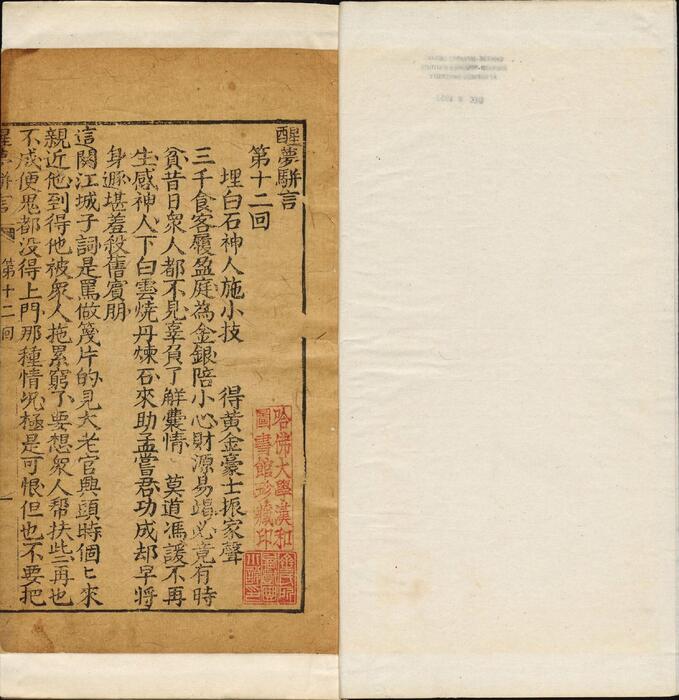 醒夢駢言
第十二回
埋白石神人施小技　得黃金豪士振家聲
三千食客履盈庭為金銀陪小心財源易竭必竟有時
貧昔日衆人都不見辜負了解囊情　莫道馮諼不再
生感神人下白雲燒丹煉石來助孟嘗君功成却早將
身遯堪羞殺舊賓朋
這闋江城子詞是罵做篾片的見大老官興頭時個匕來
親近他到得他被衆人拖累窮了要想衆人帮扶些再也
不成便鬼都没得上門那種情况極是可恨但也不要把
醒夢駢言
第十二回
一
哈佛大學漢和
圖書館珍藏印
DEC